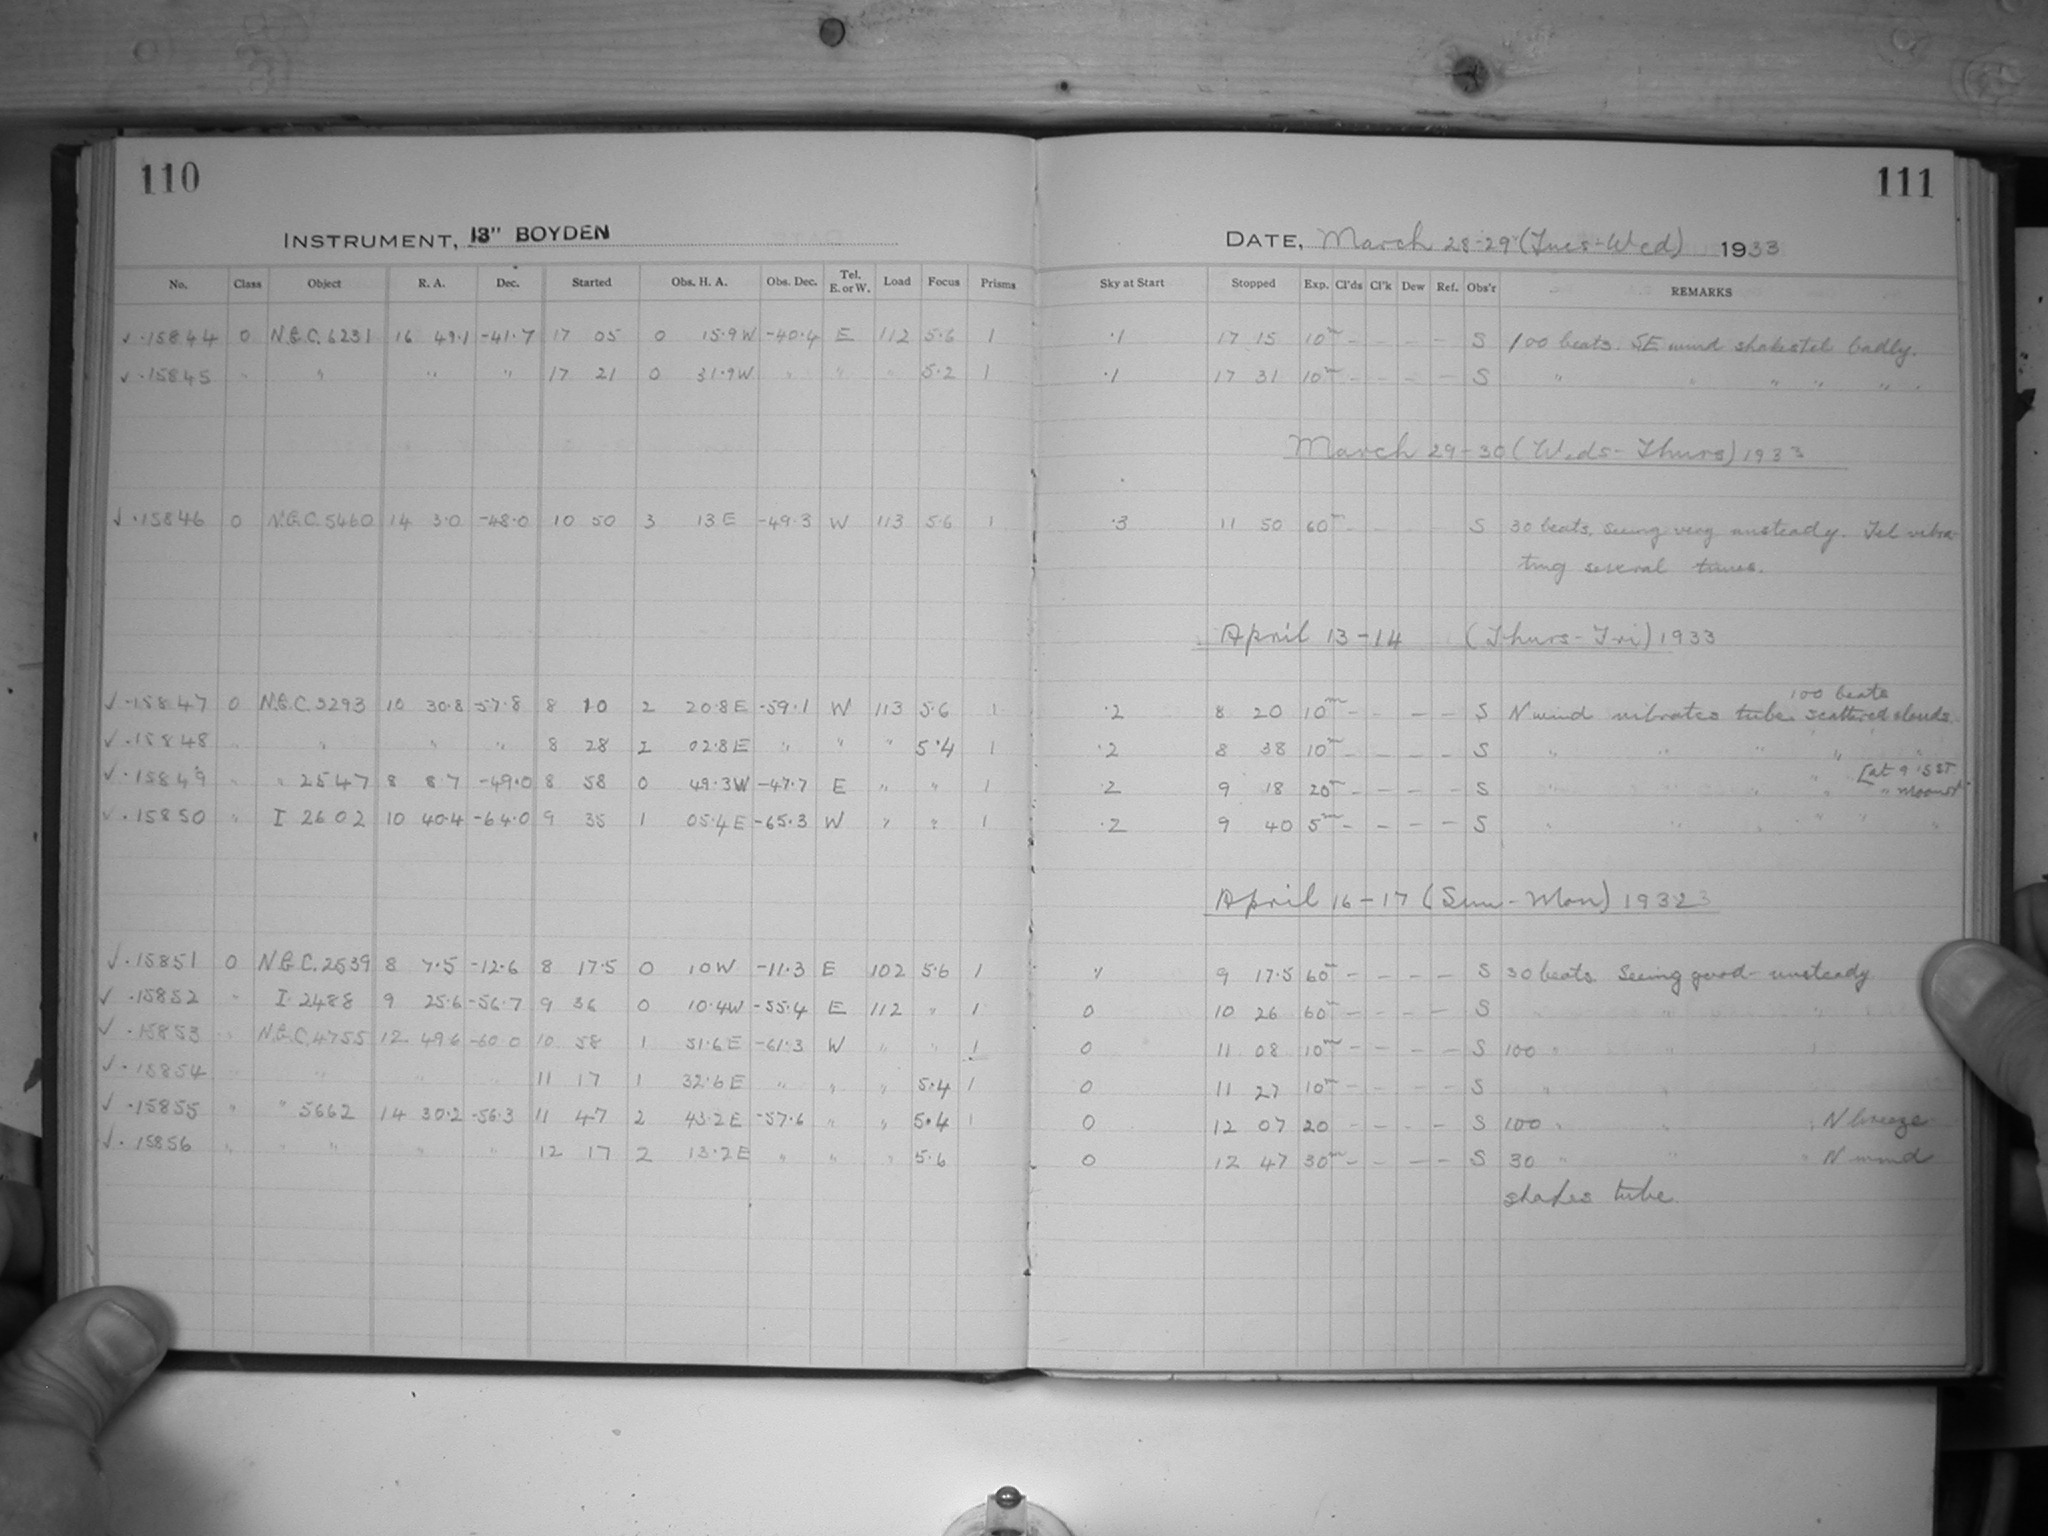 110
INSTRUMENT, 13" BOYDEN
No. Class Object R. A. Dec. Started Obs. H. A. Obs. Dec. Tel. E. or W. Load Focus Prisms
✓ ·15844 0 N.G.C. 6231 16 49.1 -41.7 17 05 0 15.9 W -40.4 E 112 5.6 1
✓ ·15845 " " " " 17 21 0 31.9 W " " " 5.2 1
✓ ·15846 0 N.G.C. 5460 14 3.0 -48.0 10 50 3 13 E -49.3 W 113 5.6 1
✓ ·15847 0 N.G.C. 3293 10 30.8 -57.8 8 10 2 20.8 E -59.1 W 113 5.6 1
✓ ·15848 " " " " 8 28 2 02.8 E " " " 5.4 1
✓ ·15849 " " 2547 8 8.7 -49.0 8 58 0 49.3 W -47.7 E " " 1
✓ ·15850 " I 2602 10 40.4 -64.0 9 35 1 05.4 E -65.3 W " " 1
✓ ·15851 0 N.G.C. 2539 8 7.5 -12.6 8 17.5 0 10 W -11.3 E 102 5.6 1
✓ ·15852 " I. 2488 9 25.6 -56.7 9 36 0 10.4 W -55.4 E 112 " 1
✓ ·15853 " N.G.C. 4755 12 49.6 -60.0 10 58 1 51.6 E -61.3 W " " 1
✓ ·15854 " " " " 11 17 1 32.6 E " " " 5.4 1
✓ ·15855 " " 5662 14 30.2 -56.3 11 47 2 43.2 E -57.6 " " 5.4 1
✓ ·15856 " " " " " 12 17 2 13.2 E " " " 5.6
111
DATE, March 28-29 (Tues-Wed) 1933
Sky at Start Stopped Exp. Cl'ds Cl'k Dew Ref. Obs'r REMARKS
·1 17 15 10m - - - - S 100 beats. SE wind shakes tel badly.
·1 17 31 10m - - - - S " " " " " "
March 29-30 (Weds-Thurs) 1933
·3 11 50 60m - - - - S 30 beats. Seeing very unsteady. Tel vibra-
ting several times.
April 13-14 (Thurs-Fri) 1933
100 beats
·2 8 20 10m - - - - S N wind vibrates tube. scattered clouds.
·2 8 38 10m - - - - S " " " " "
[at 9 15 ST
·2 9 18 20m - - - - S " " " " " moonst
·2 9 40 5m - - - - S " " " " " "
April 16-17 (Sun-Mon) 19323
·1 9 17.5 60m - - - - S 30 beats. Seeing good - unsteady
0 10 26 60m - - - - S " " "
0 11 08 10m - - - - S 100 " "
0 11 27 10m - - - - S " "
0 12 07 20 - - - - S 100 " " " N breeze
0 12 47 30m - - - - S 30 " " " N wind
shakes tube.